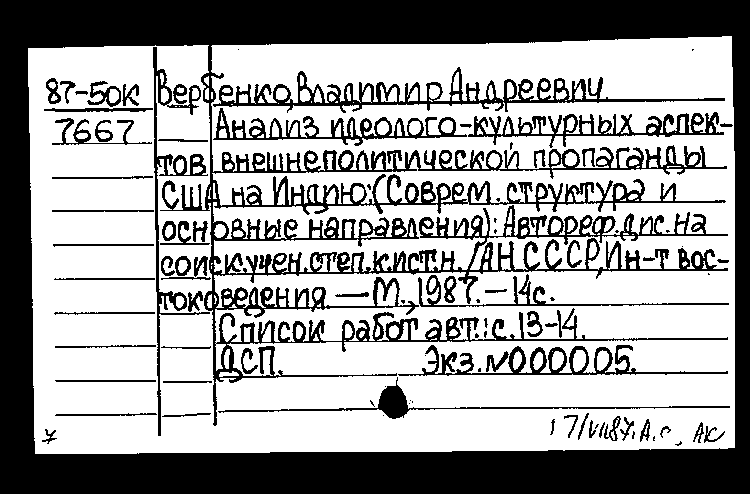 87-5ок Вербенко, Владимир Андреевич.
7667 Анализ идеолого-культурных аспек-
тов внешнеполитической пропаганды
США на Индию: (Соврем. структура и
основные направления): Автореф. дис. на
соиск. учен. степ. к. ист. н. /АН СССР, Ин-т вос-
токоведения — М., 1987. — 14 с.
Список работ авт.: с. 13-14.
ДСП. Экз. N000005.
17/VII87. А.С., АК